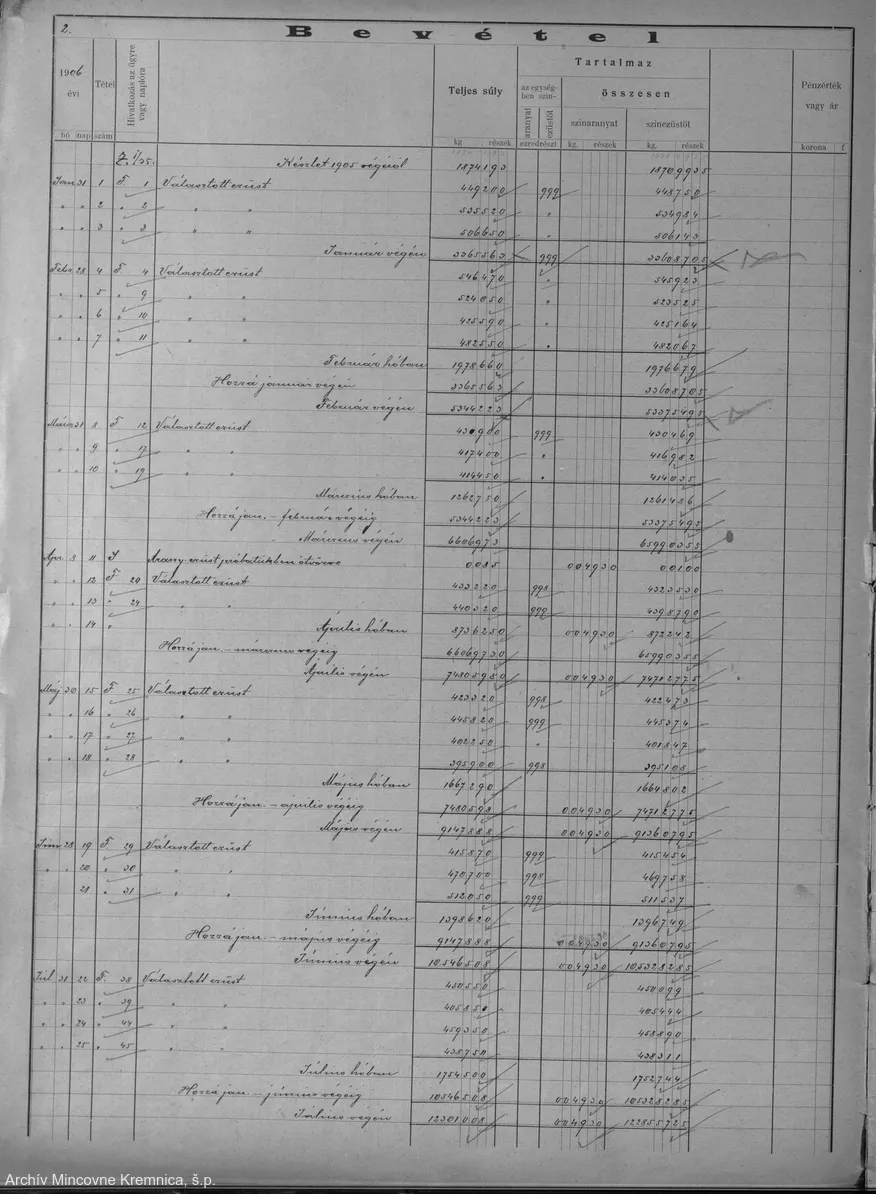 2.
Bevétel
1906
évi
Tétel
Hivatkozás az ügyre
vagy naplóra
Teljes súly
Tartalmaz
az egység-
ben szín-
aranyat
ezüstöt
összesen
színaranyat
színezüstöt
Pénzérték
vagy ár
hó nap szám kg részek ezredrészt kg. részek kg. részek korona f
Készlet 1905 végéről 1874193 18709935
Jan 31 1 F 1 Választott ezüst 449200 999 448750
" " 2 " 2 " " 535520 " 534984
" " 3 " 3 " " 506650 " 506143
Január végén 3365563 999 33608705
Febr. 28 4 F 4 Választott ezüst 546470 " 545923
" " 5 " 9 " " 524050 " 523525
" " 6 " 10 " " 425590 " 425164
" " 7 " 11 " " 482550 " 482067
Február hóban 1978660 1976679
Hozzá január végén 3365563 33608705
Február végén 5344223 53375495
Márc 31 8 F 12 Választott ezüst 430900 999 430469
" " 9 " 17 " " 417400 " 416982
" " 10 " 19 " " 414450 " 414035
Március hóban 1262750 1261486
Hozzá jan. – február végéig 5344223 53375495
Március végén 6606973 65990355
Apr. 8 11 Arany-ezüst próbatükben ötvözve 0085 004930 00100
" " 12 F 20 Választott ezüst 433220 998 4323530
" " 13 " 24 " " 440320 999 4398790
" " 14 " Április hóban 8736250 004930 872242
Hozzá jan. – március végéig 66069730 65990355
Április végén 74805980 004930 74712775
Máj 30 15 F 25 Választott ezüst 423320 998 422473
" " 16 " 26 " " 445820 999 445374
" " 17 " 27 " " 402250 " 401847
" " 18 " 28 395900 998 395108
Május hóban 1667290 1664802
Hozzá jan. – április végéig 7480598 004930 74712775
Május végén 9147888 004930 91360795
Jun 28 19 F 29 Választott ezüst 415870 999 415454
" " 20 " 30 " " 470700 998 469758
21 " 31 " " 512050 999 511537
Június hóban 1398620 1396749
Hozzá jan. – május végéig 9147888 004930 91360795
Június végén 10546508 004930 105328285
Júl 31 22 F. 38 Választott ezüst 450550 450099
" " 23 " 39 " " 405850 405444
" " 24 " 44 " " 459350 458890
" " 25 " 45 " " 438750 438311
Július hóban 1754500 1752744
Hozzá jan. – június végéig 10546508 004930 105328285
Július végén 12301008 004930 122855725
Archív Mincovne Kremnica, š.p.